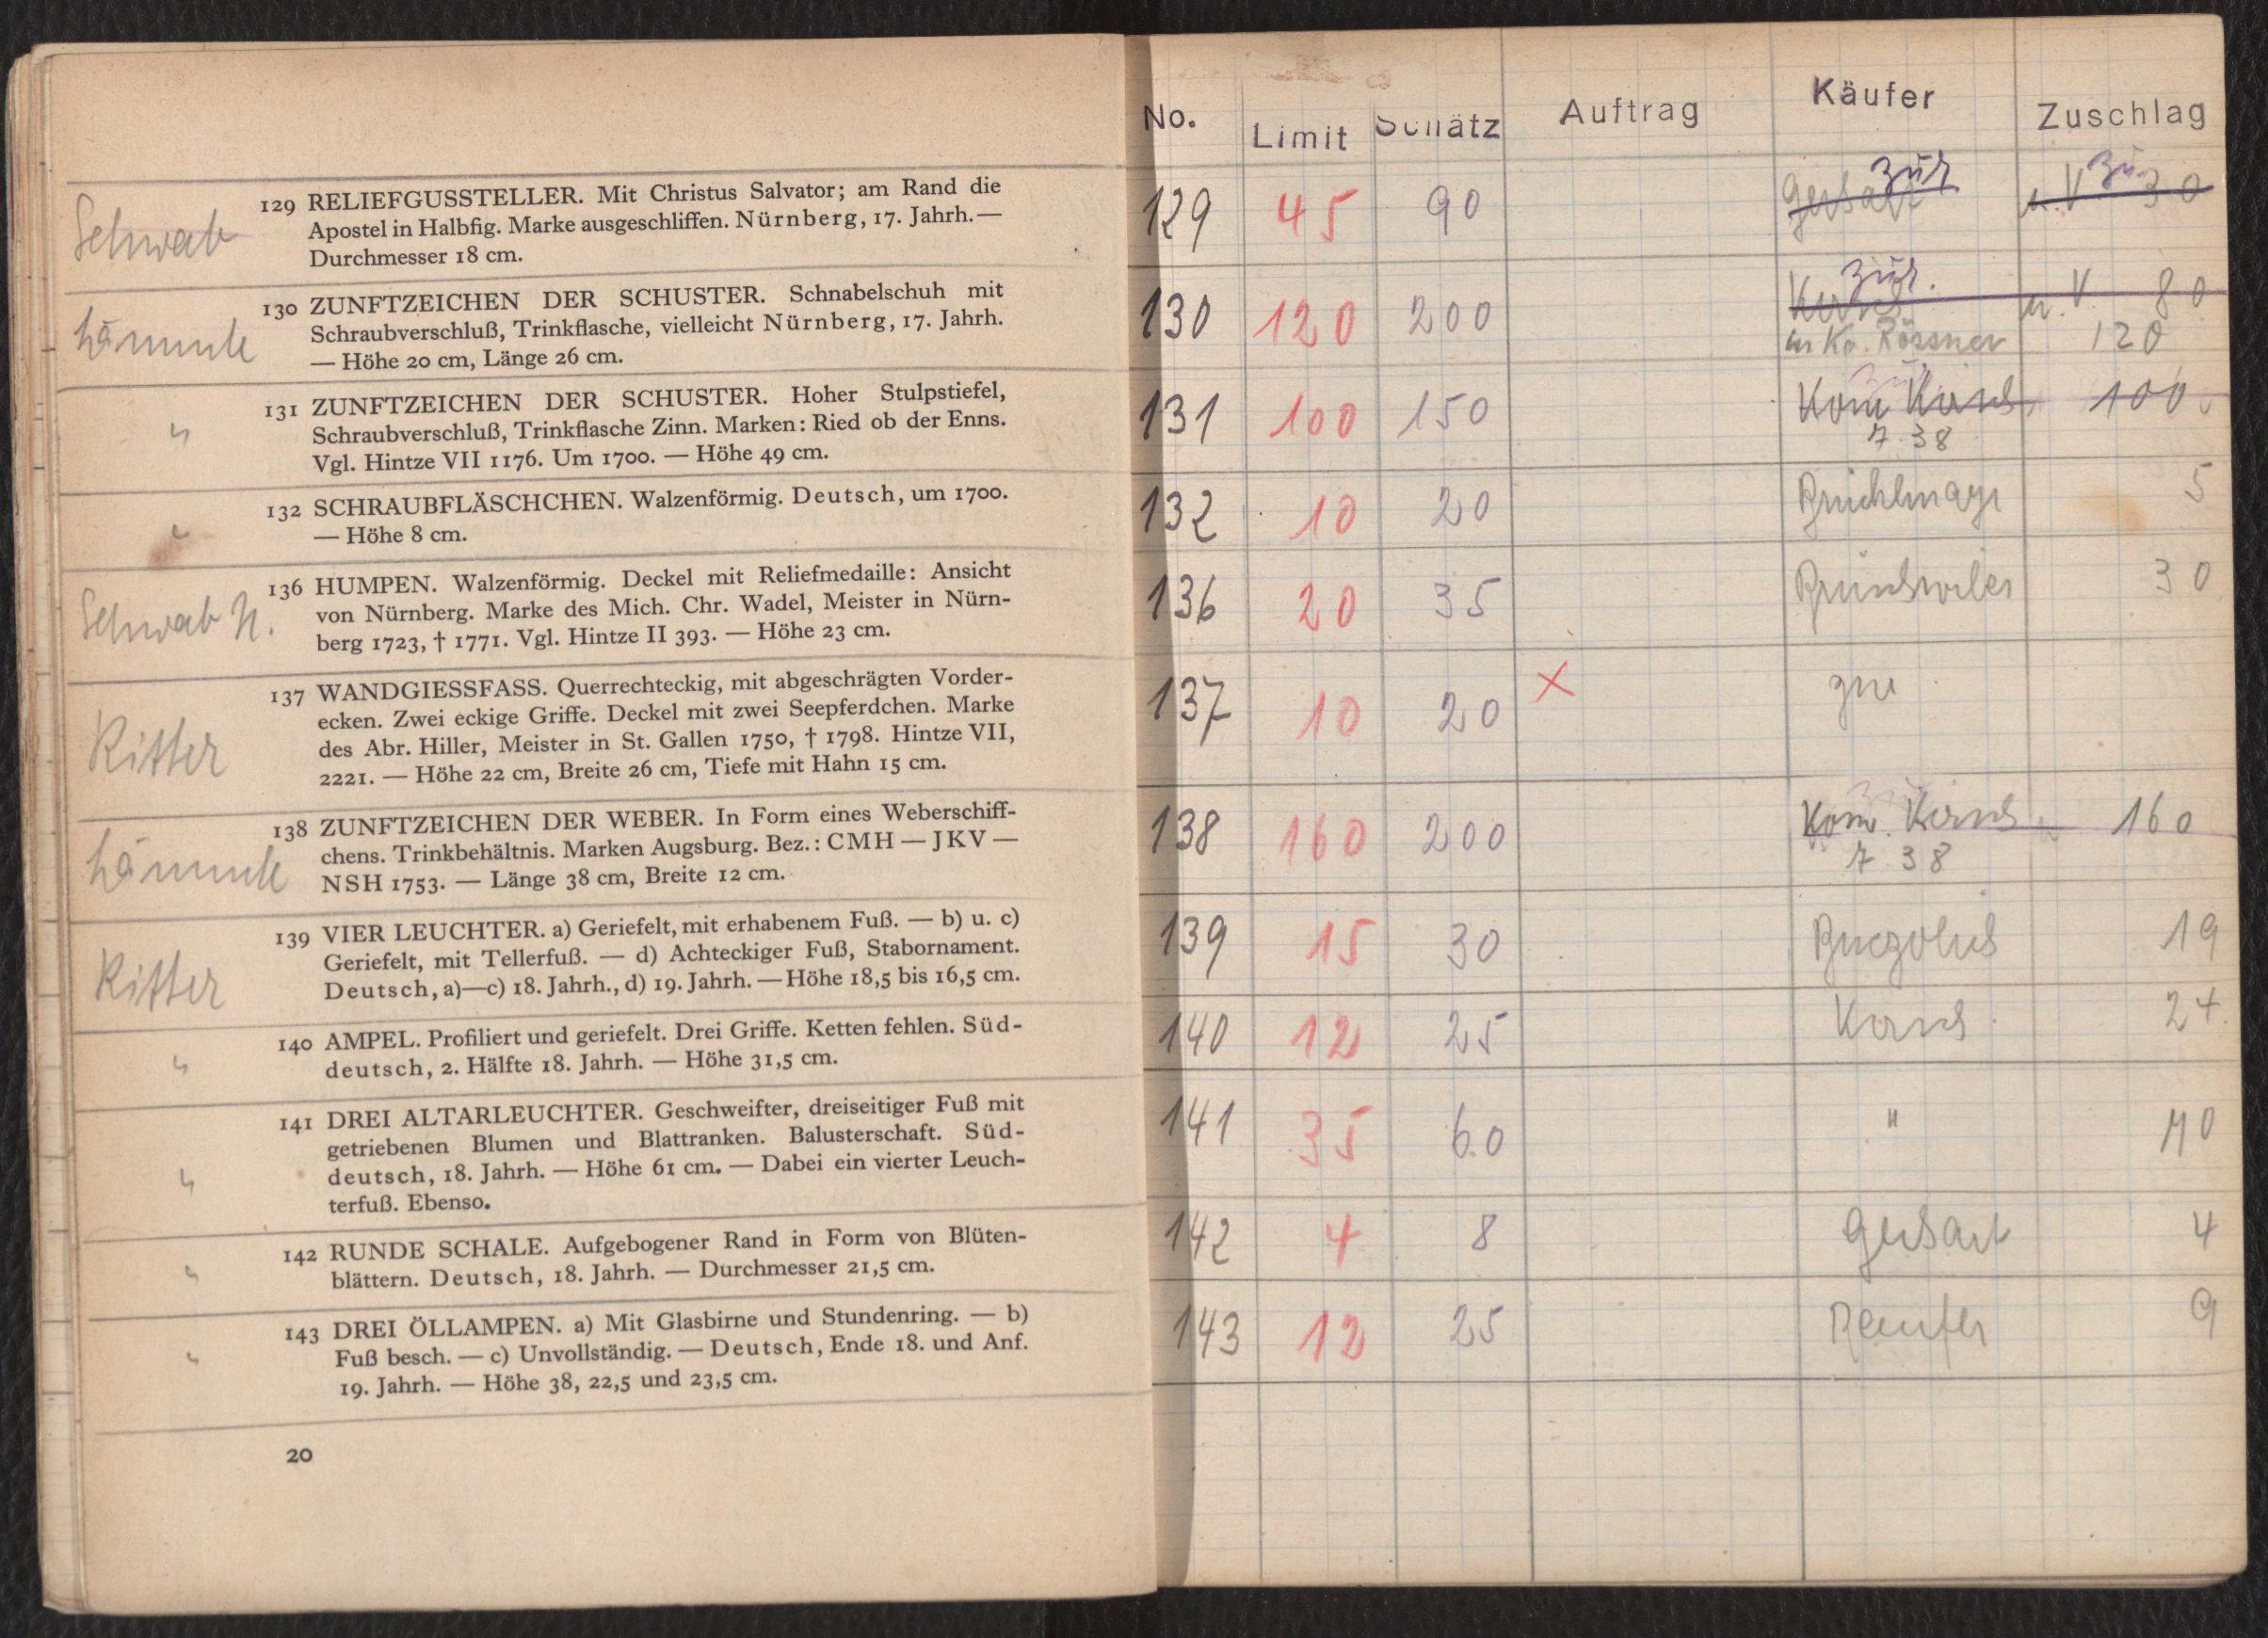 Schwab
129 RELIEFGUSSTELLER. Mit Christus Salvator; am Rand die
Apostel in Halbfig. Marke ausgeschliffen. Nürnberg, 17. Jahrh. —
Durchmesser 18 cm.
130 ZUNFTZEICHEN DER SCHUSTER. Schnabelschuh mit
Schraubverschluß, Trinkflasche, vielleicht Nürnberg, 17. Jahrh.
— Höhe 20 cm, Länge 26 cm.
Lämmle
131 ZUNFTZEICHEN DER SCHUSTER. Hoher Stulpstiefel,
Schraubverschluß, Trinkflasche Zinn. Marken: Ried ob der Enns.
Vgl. Hintze VII 1176. Um 1700. — Höhe 49 cm.
"
132 SCHRAUBFLÄSCHCHEN. Walzenförmig. Deutsch, um 1700.
— Höhe 8 cm.
"
136 HUMPEN. Walzenförmig. Deckel mit Reliefmedaille: Ansicht
von Nürnberg. Marke des Mich. Chr. Wadel, Meister in Nürn-
berg 1723, † 1771. Vgl. Hintze II 393. — Höhe 23 cm.
Schwab N.
137 WANDGIESSFASS. Querrechteckig, mit abgeschrägten Vorder-
ecken. Zwei eckige Griffe. Deckel mit zwei Seepferdchen. Marke
des Abr. Hiller, Meister in St. Gallen 1750, † 1798. Hintze VII,
2221. — Höhe 22 cm, Breite 26 cm, Tiefe mit Hahn 15 cm.
Ritter
138 ZUNFTZEICHEN DER WEBER. In Form eines Weberschiff-
chens. Trinkbehältnis. Marken Augsburg. Bez.: CMH — JKV —
NSH 1753. — Länge 38 cm, Breite 12 cm.
Lämmle
139 VIER LEUCHTER. a) Geriefelt, mit erhabenem Fuß. — b) u. c)
Geriefelt, mit Tellerfuß. — d) Achteckiger Fuß, Stabornament.
Deutsch, a)—c) 18. Jahrh., d) 19. Jahrh. — Höhe 18,5 bis 16,5 cm.
Ritter
140 AMPEL. Profiliert und geriefelt. Drei Griffe. Ketten fehlen. Süd-
deutsch, 2. Hälfte 18. Jahrh. — Höhe 31,5 cm.
"
141 DREI ALTARLEUCHTER. Geschweifter, dreiseitiger Fuß mit
getriebenen Blumen und Blattranken. Balusterschaft. Süd-
deutsch, 18. Jahrh. — Höhe 61 cm. — Dabei ein vierter Leuch-
terfuß. Ebenso.
"
142 RUNDE SCHALE. Aufgebogener Rand in Form von Blüten-
blättern. Deutsch, 18. Jahrh. — Durchmesser 21,5 cm.
"
143 DREI ÖLLAMPEN. a) Mit Glasbirne und Stundenring. — b)
Fuß besch. — c) Unvollständig. — Deutsch, Ende 18. und Anf.
19. Jahrh. — Höhe 38, 22,5 und 23,5 cm.
"
20
No. Limit Schätz Auftrag Käufer Zuschlag
zur zur
129 45 90 u. V 30
zur.
130 120 200 u. V. 80
Rössner 120
131 100 150 Kom 100
7.38
132 10 20 5
136 20 35 30
137 10 20 X
138 160 200 Kom. 160
7.38
139 15 30 19
140 12 25 24
141 35 60 "
142 4 8 4
143 12 25 9